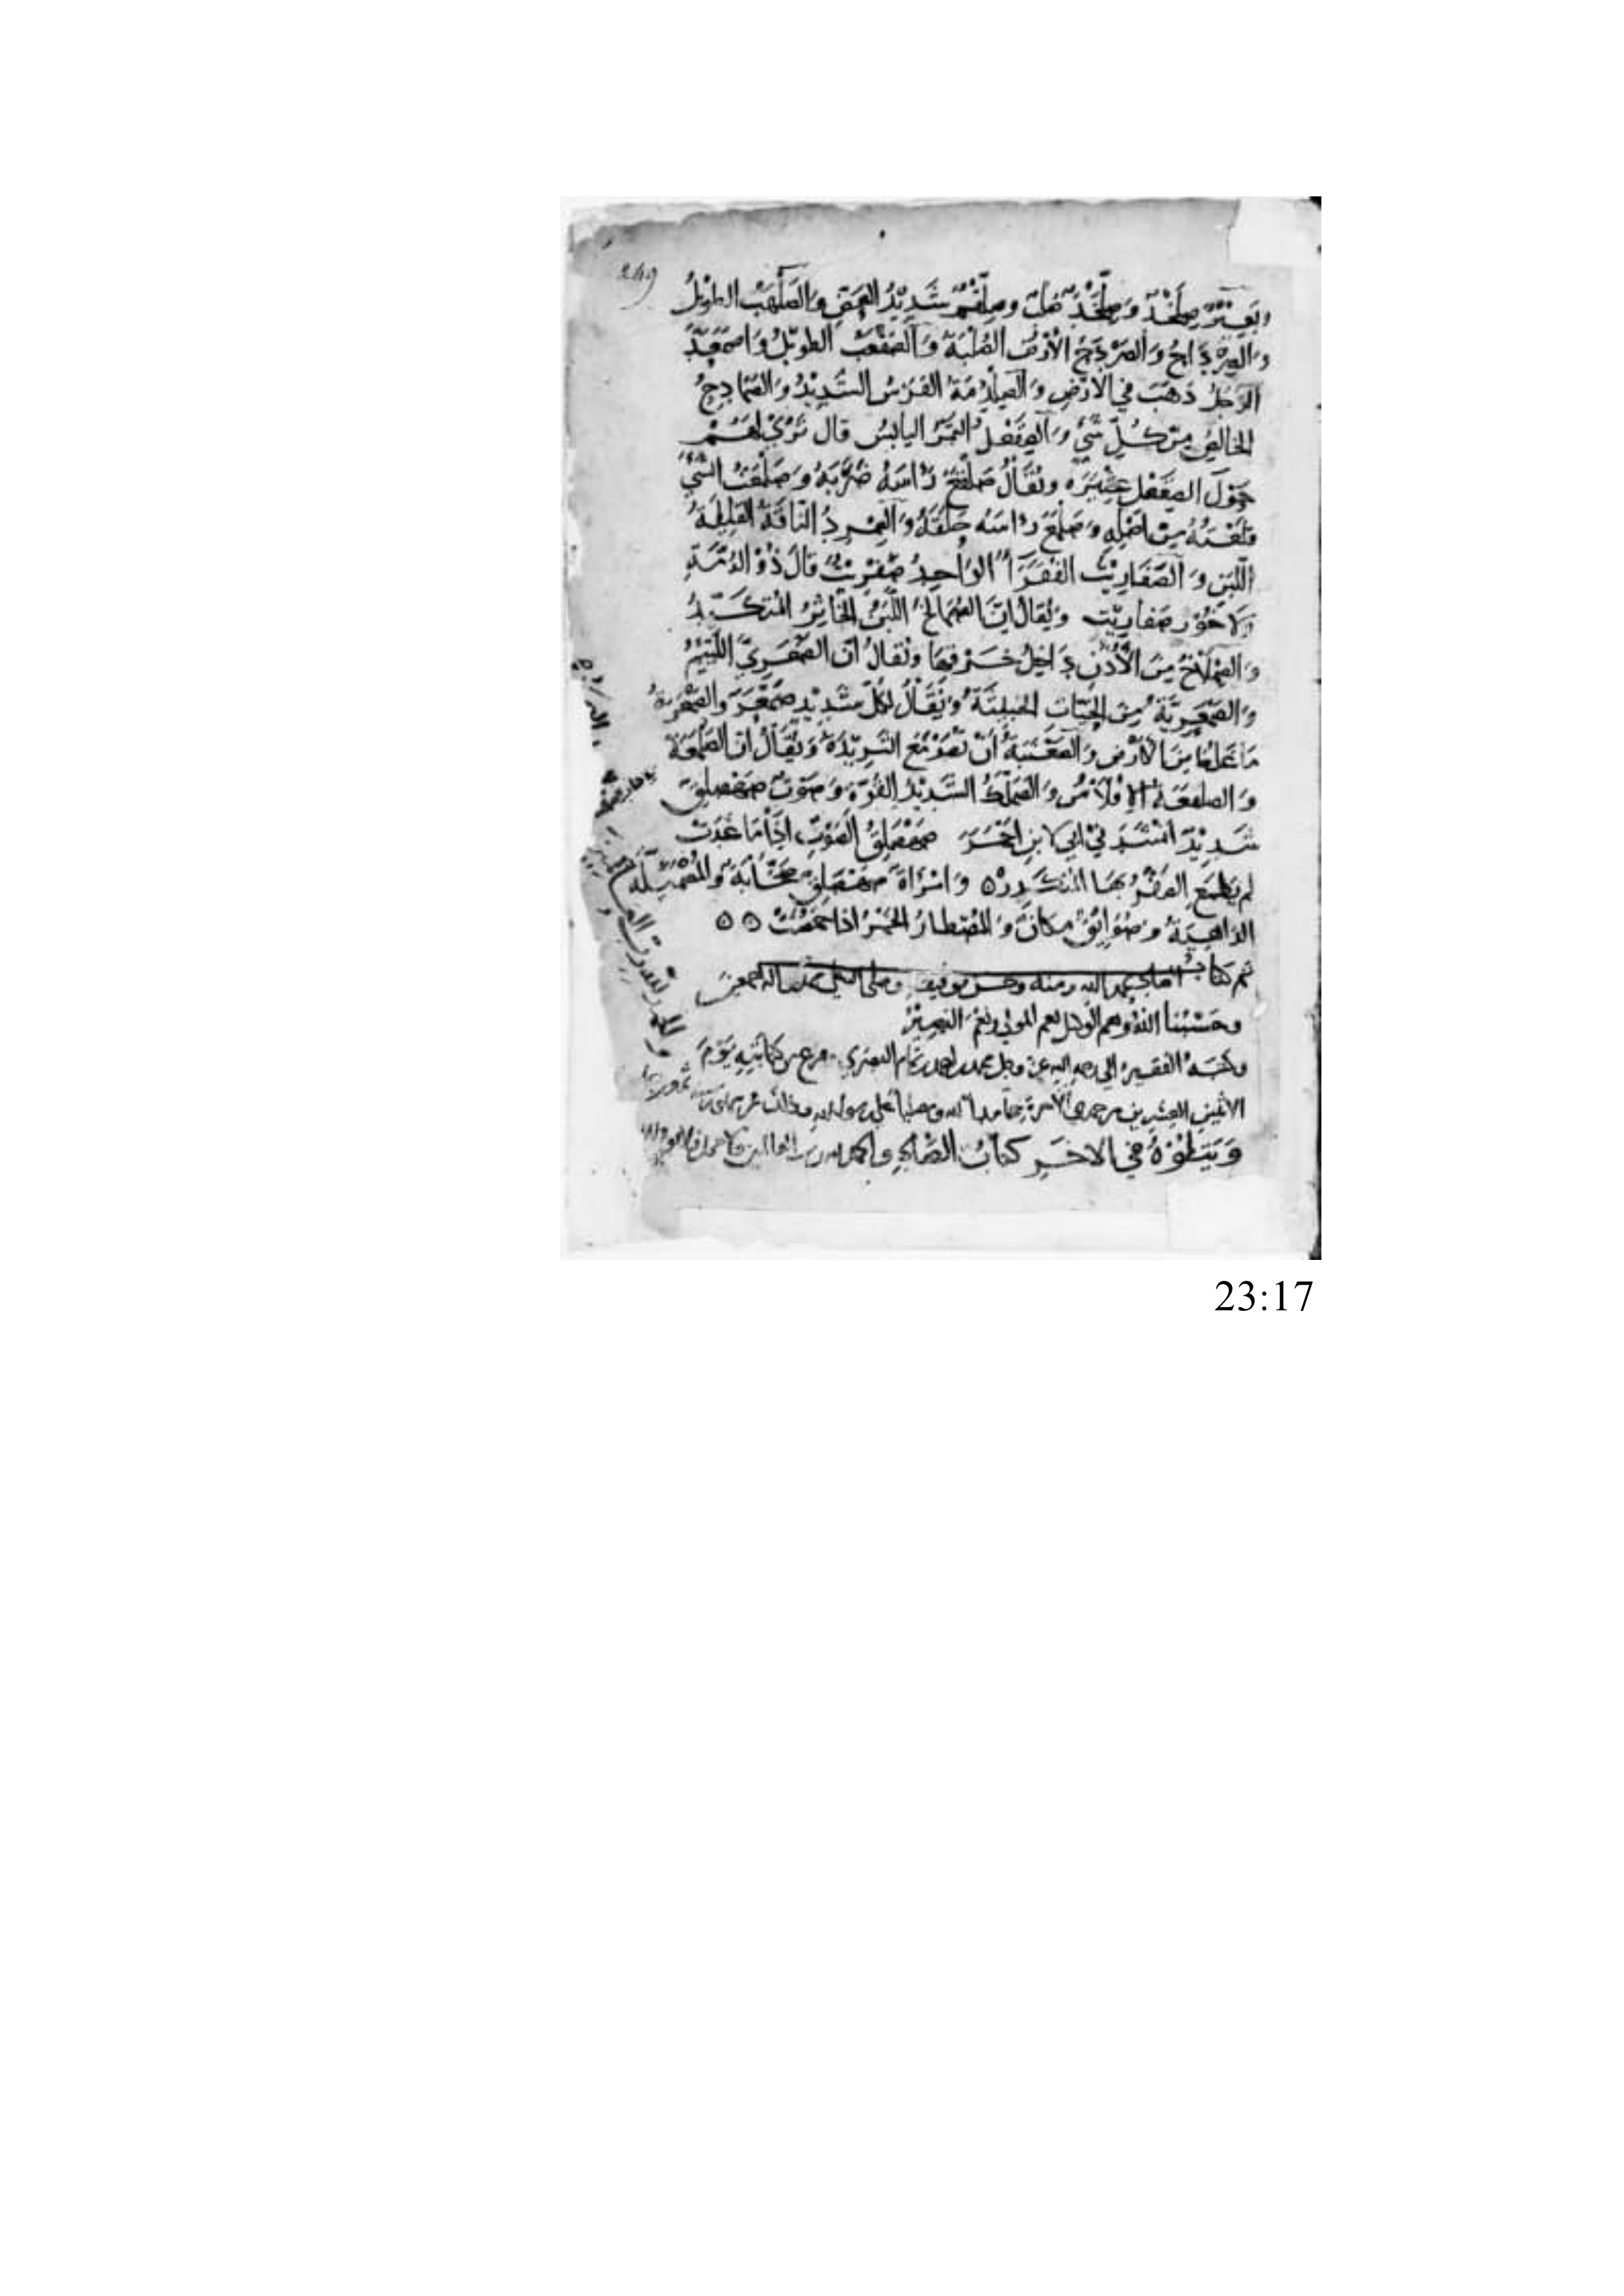 249
وبعير صلخد وصلخد صلب وصلخم شديد والصلهب الطويل
والصرداح والصردح الارض الصلبة والصقعب الطويل واصمعد
الرجل ذهب في الارض والصلدمة الفرس الشديد والصمادح
الخالص من كل شي والصقعل التمر اليابس قال ترى لهم
حول الصقعل عثيره ويقال صلفع راسه ضربه وصلمعت الشي
قلعته من اصله وصلمع راسه حلقه والصمرد الناقة القليلة
اللبن والصفاريت الفقرا الواحد صفريت قال ذو الرمة
ولا خور صفاريت ويقال ان الصمالخ اللبن الخاثر المتكبد
والصملاخ من الاذن داخل خرقها ويقال ان الصمعري اللئيم
والصمعرية من الحيات الخبيثة ويقال لكل شديد صمعر والصمعرة
ما غلظ من الارض والصعنبة ان تصومع الثريدة ويقال ان الصلمعة
والصلفعة الافلاس والصملك الشديد القوة وصوت صهصلق
شديد انشد في ابي لابن احمر صهصلق الصوت اذا ما غدت
لم يطمع الصقر بها المنكدر ه وامراة صهصلق صخابة والمصمئلة
الداهية وصوايق مكان والمصطار الخمر اذا حمضت ه ه
تم كتاب بحمد الله ومنه وحسن توفيقه وصلى الله على محمد اله اجمعين
وحسبنا الله ونعم الوكيل نعم المولى ونعم النصير
وكتبه الفقير الى رحمه الله عز وجل محمد بن احمد بن تمام البصري فرغ من كتابته يوم
الاثنين العشرين من جمدى الاخرة حامدا لله ومصليا على رسوله
ويتلوه في الاخر كتاب الضاد والحمد لله رب العالمين
23:17